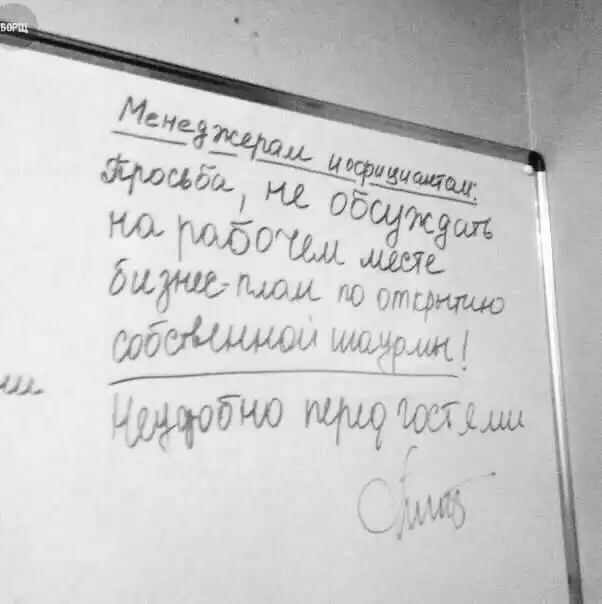 БОРЩ
Менеджерам и официантам:
Просьба, не обсуждать
на рабочем месте
бизнес-план по открытию
собственной шаурмы!
Неудобно перед гостями